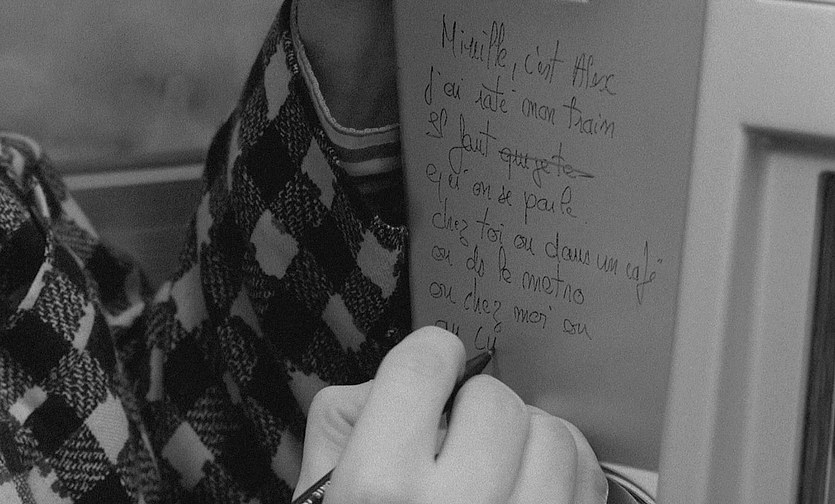 Mireille, c'est Alex
j'ai raté mon train
Il faut que je te
qu'on se parle
chez toi ou dans un café
ou ds le metro
ou chez moi ou
au Cy